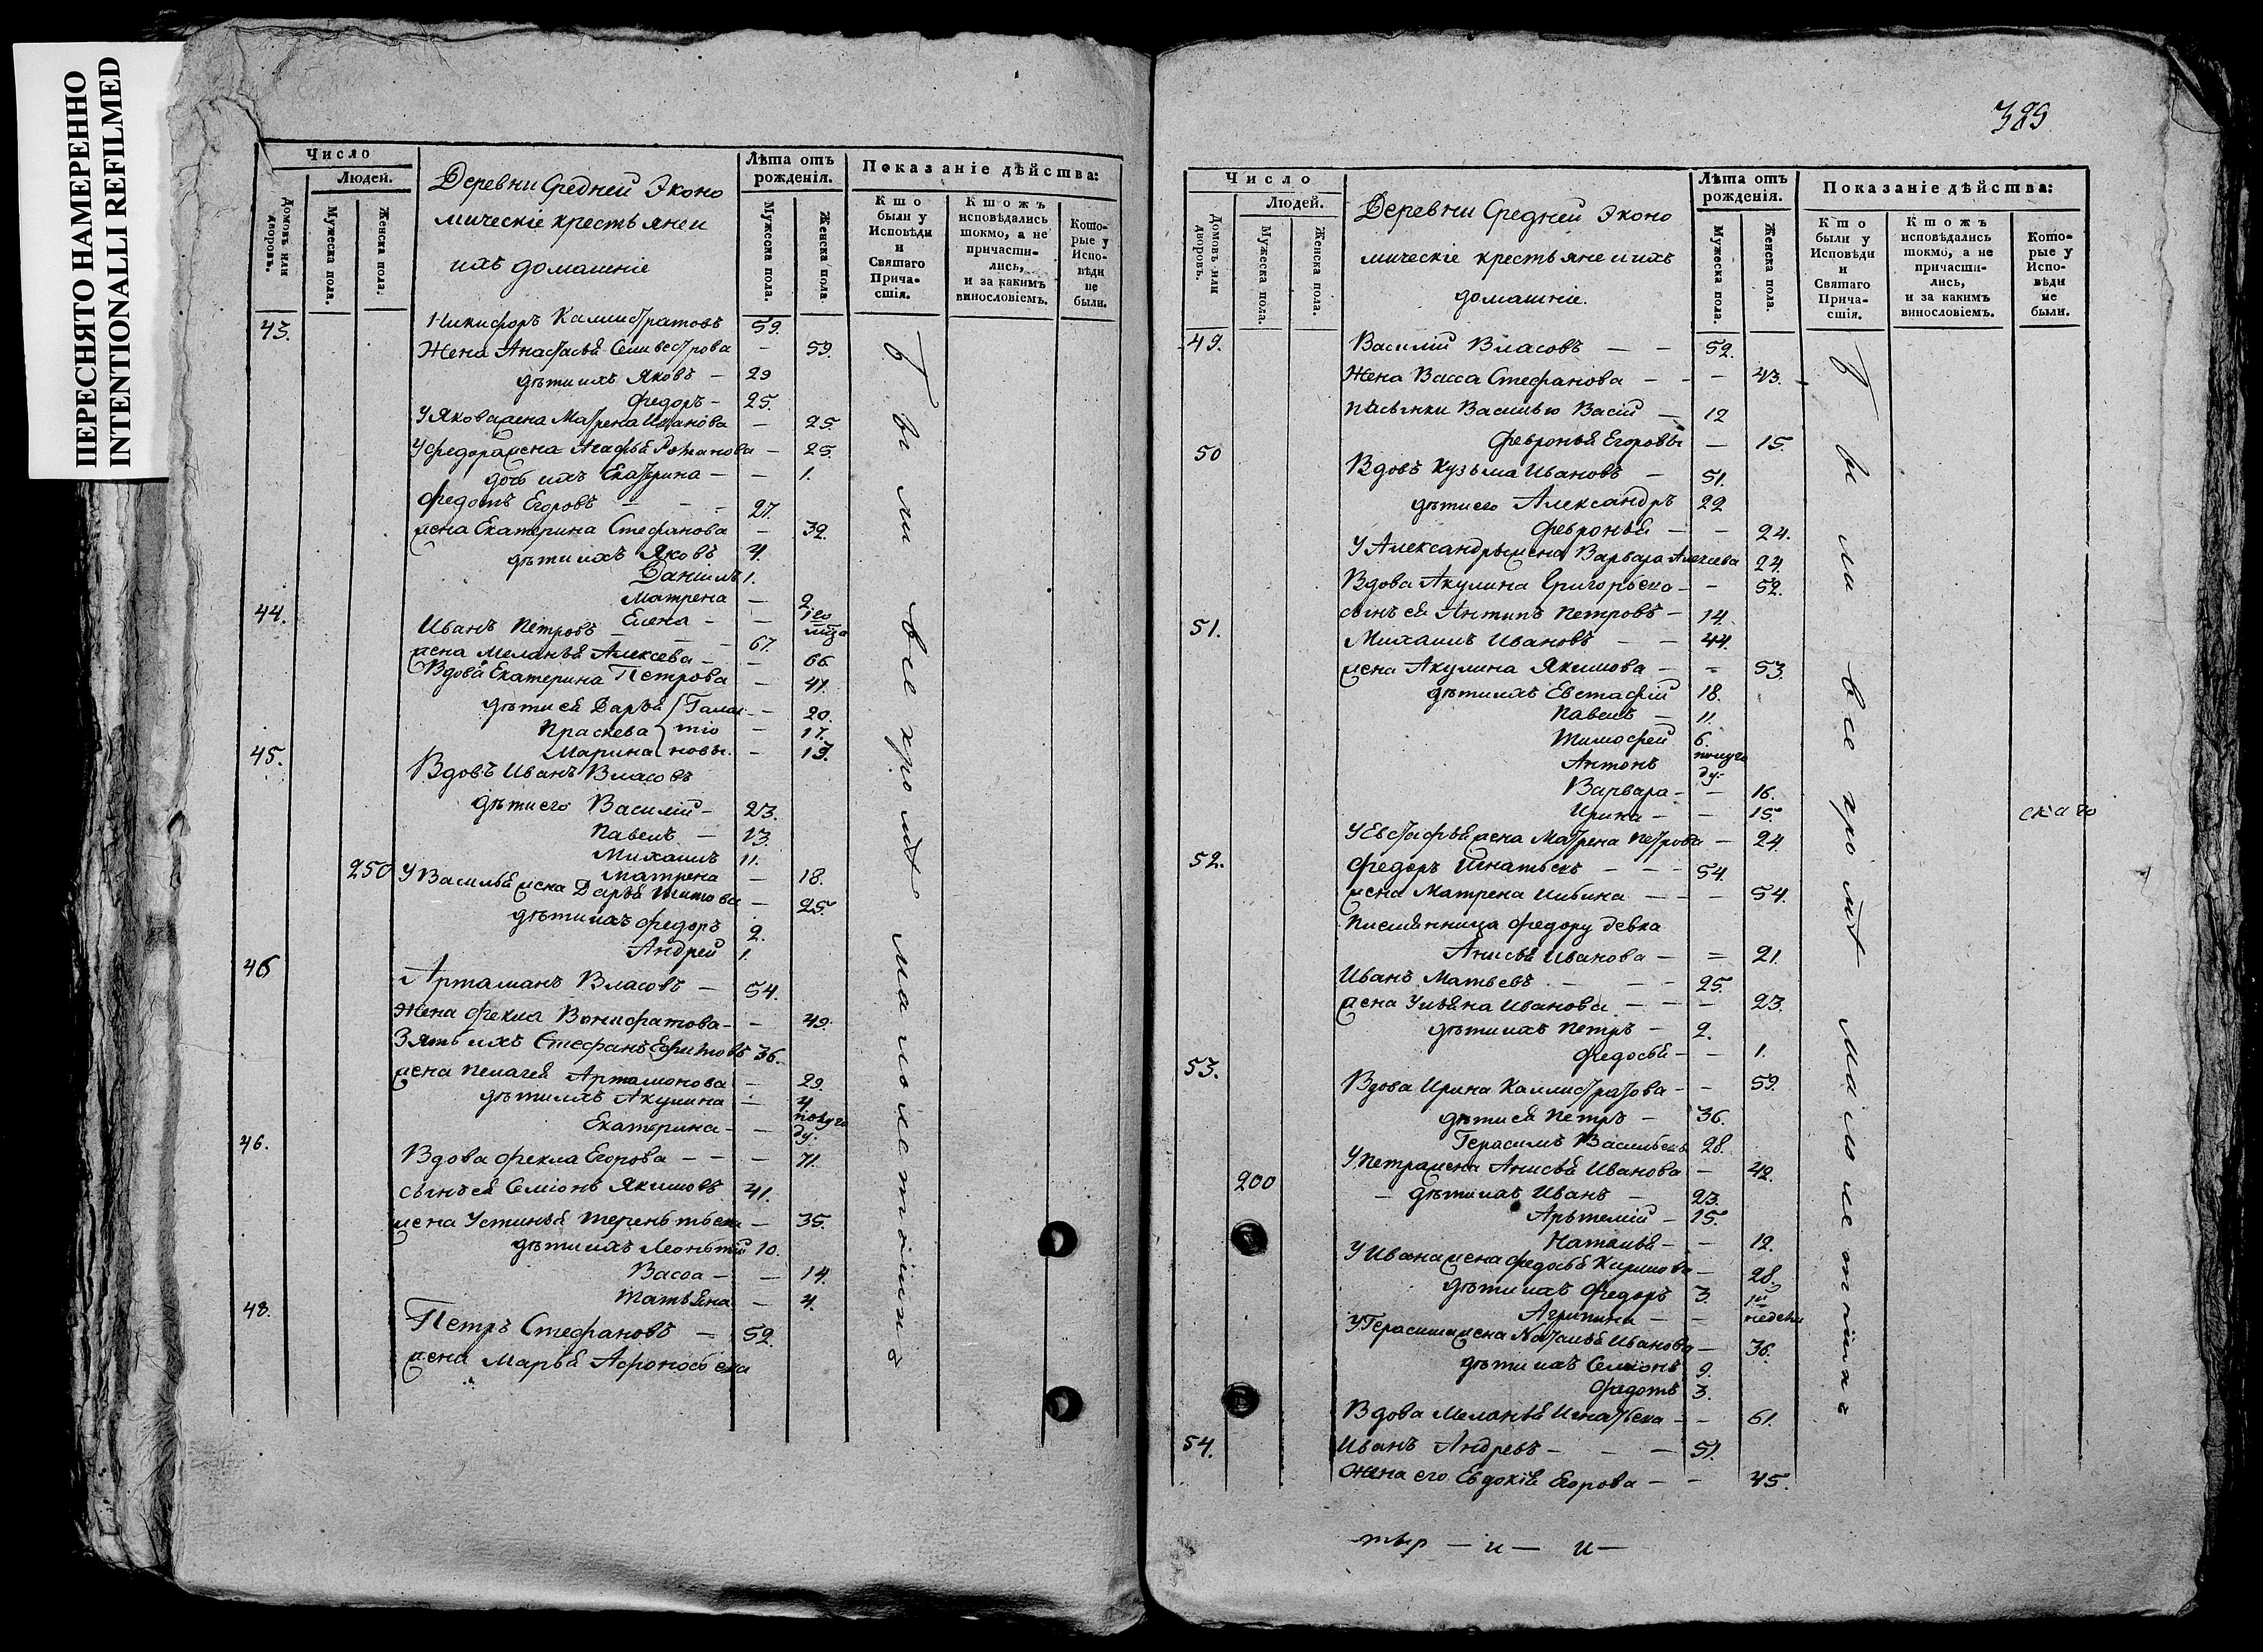 ПЕРЕСНЯТО НАМЕРЕННО
INTENTIONALLI REFILMED
Число
Людей.
Домовъ или дворовъ.
Мужеска пола.
Женска пола.
Деревни Средней Эконо
мическіе крестьяне и
ихъ домашніе
Лѣта отъ рожденія.
Мужеска пола.
Женска пола.
Показаніе дѣйства:
Кто были у Исповѣди и Святаго Причастія.
Ктожъ исповѣдались токмо, а не причастились, и за какимъ винословіемъ.
Которые у Исповѣди не были.
43. Никифоръ Каллистратовъ 59.
Жена Анастасья Селивестрова – 59.
дѣти ихъ Яковъ – 29
Федоръ – 25.
У Якова жена Матрена Иванова – 25.
У Федора жена Агафья Романова – 25.
дочь ихъ Екатерина – – 1.
Федотъ Егоровъ – – – 27.
жена Екатерина Стефанова – 32.
дѣти ихъ Яковъ 4.
Даніилъ 1.
Матрена – 2.
Елена – –
44. Иванъ Петровъ – – – 67.
жена Меланья Алексева – – 66.
Вдова Екатерина Петрова – 41.
дѣти ея Дарья – 20.
Праскева – 17.
Марина – 13.
45. Вдовъ Иванъ Власовъ
дѣти его Василій – 23.
Павелъ – 13.
Михаилъ 11.
250 Матрена – 18.
У Василья жена Дарья Титова – 25.
дѣти ихъ Федоръ 2.
Андрей 1.
46 Артамонъ Власовъ – 54.
Жена Фекла Вонифатова – – 49.
Зять ихъ Стефанъ Ефимовъ 36.
жена Пелагея Артамонова – 29.
дѣти ихъ Акулина – 4
Екатерина – – полугоду.
46. Вдова Фекла Егорова – – – 71.
сынъ ея Семіонъ Якимовъ 41.
жена Устинья Терентьева – 35.
дѣти ихъ Леонътій 10.
Васса – – 14.
Татьяна – 4.
48. Петръ Стефановъ – 52.
жена Марья Афонасьева
Были все кромѣ малолетнихъ
389
Число
Людей.
Домовъ или дворовъ.
Мужеска пола.
Женска пола.
Деревни Средней Эконо
мическіе крестьяне и ихъ
домашніе.
Лѣта отъ рожденія.
Мужеска пола.
Женска пола.
Показаніе дѣйства:
Кто были у Исповѣди и Святаго Причастія.
Ктожъ исповѣдались токмо, а не причастились, и за какимъ винословіемъ.
Которые у Исповѣди не были.
49. Василій Власовъ – – 52.
Жена Васса Стефанова – – – 43.
Пасынки Василью Васій – 12
Февронья Егоровы – 15.
50 Вдовъ Кузьма Ивановъ – 51.
дѣти его Александръ 22
Февронья – – 24.
У Александры жена Варвара Алексева 24.
Вдова Акулина Григорьева – – 52.
сынъ ея Антипъ Петровъ – 14.
51. Михаилъ Ивановъ – – 44.
жена Акулина Якимова – – 53.
дѣти ихъ Евстафій 18.
Павелъ – 11.
Тимофей 6.
Антонъ полугоду.
Варвара – – 16.
Ирина – – 15.
У Евстафья жена Матрена Петрова – 24.
52. Федоръ Игнатьевъ – – – 54.
жена Матрена Ильина – – – 54.
Племянница Федору девка
Анисья Иванова – – 21.
Иванъ Матвевъ – – – 25.
жена Ульяна Иванова – – – 23.
дѣти ихъ Петръ – 2.
Федосья – – 1.
53. Вдова Ирина Каллистратова – – 59.
дѣти ея Петръ – 36.
Герасимъ Васильевы 28.
У Петра жена Анисья Иванова – 42.
200 – дѣти ихъ Иванъ – 23.
Арътемій – 15.
Наталья – – 12.
У Ивана жена Федосья Кирилова – 28.
дѣти ихъ Федоръ 3.
Агрипина – – недели
У Герасима жена Наталья Иванова – 36.
дѣти ихъ Семіонъ 9.
Федотъ 3.
Вдова Меланья Игнатьева – – 61.
54. Иванъ Андревъ – – – 51.
Жена его Евдокія Егорова – – 45.
Были все кромѣ малолетнихъ
скаго